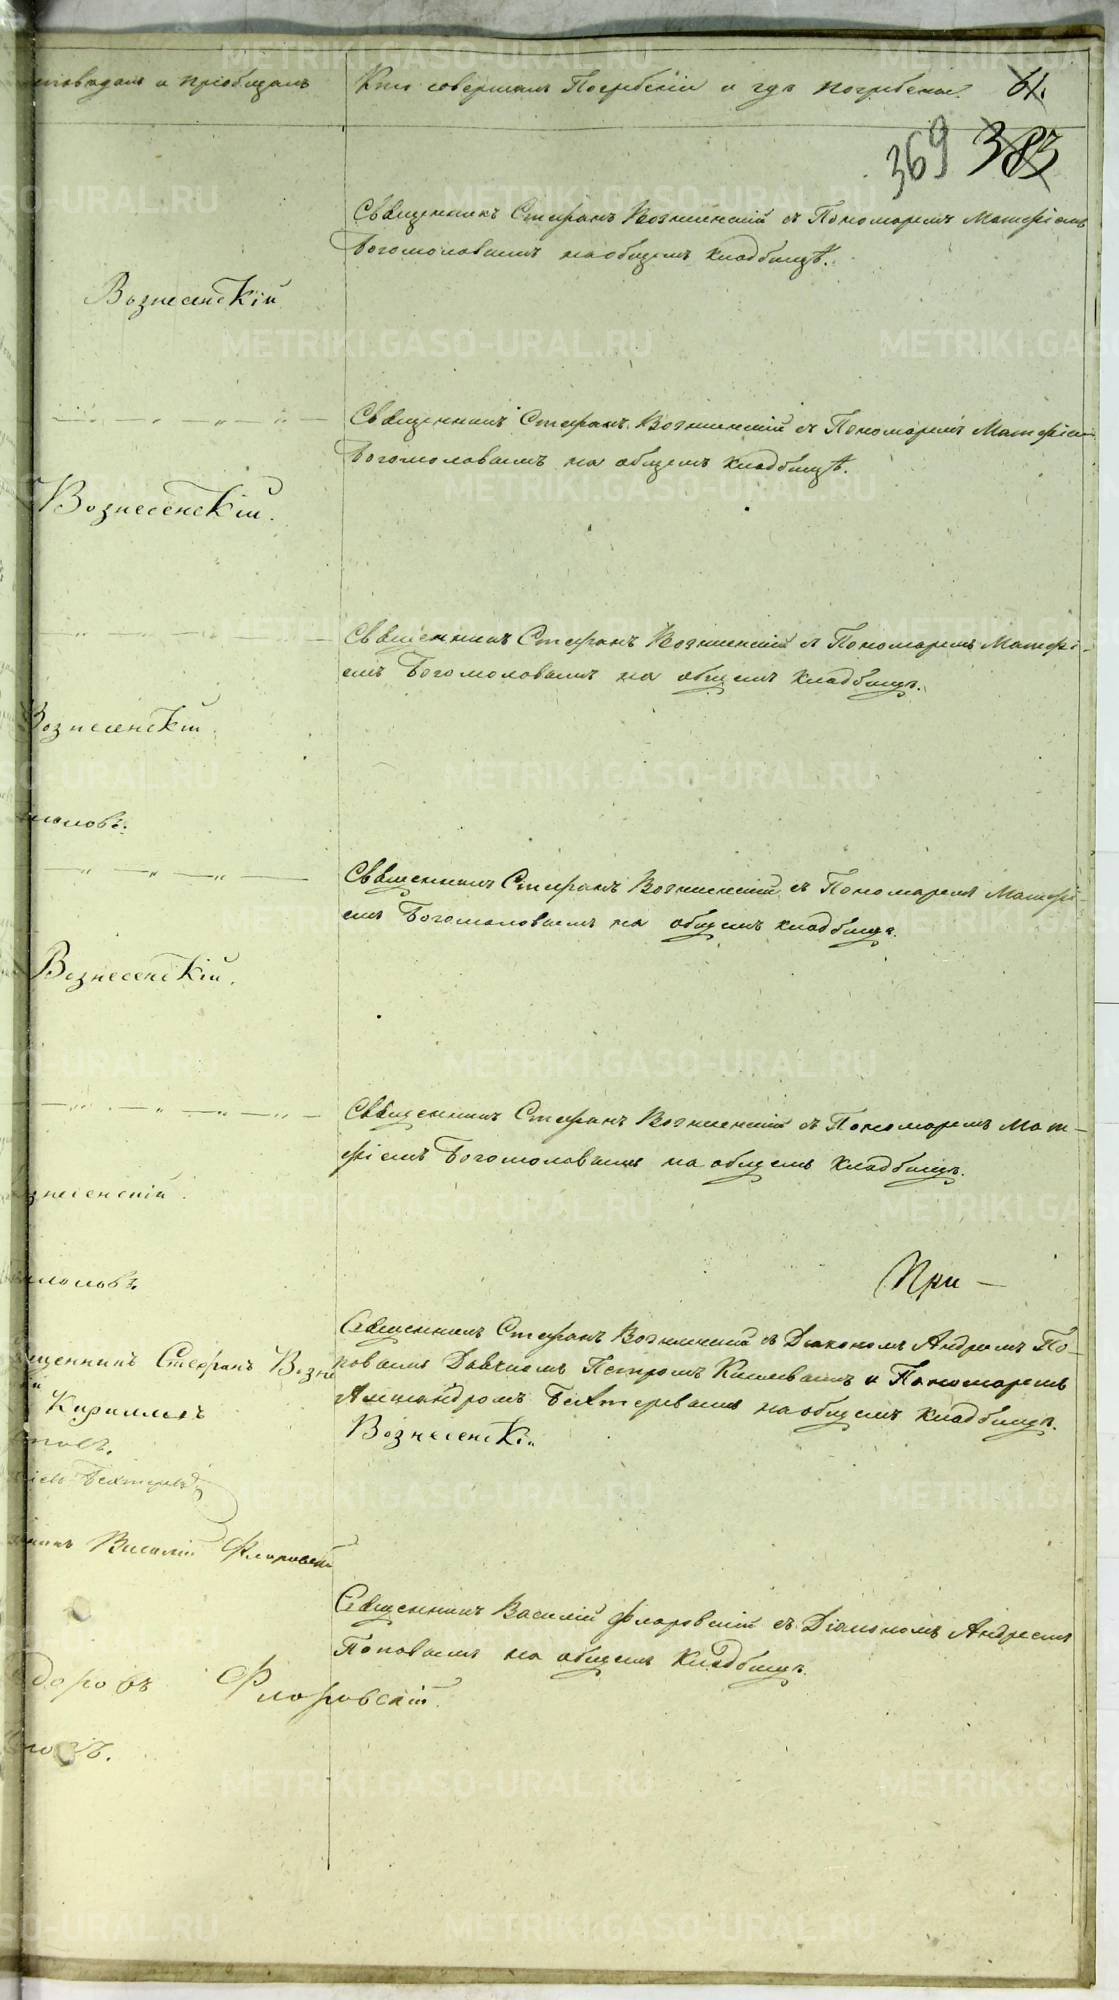 исповѣдалъ и пріобщалъ
Кто совершалъ Погребеніе и гдѣ погребены.
61.
369 383
Священникъ Стефанъ Вознесенскій съ Пономаремъ Матфіемъ
Богомоловымъ на общемъ кладбищѣ.
Вознесенскій
Священникъ Стефанъ Вознесенскій съ Пономаремъ Матфіемъ
Богомоловымъ на общемъ кладбищѣ.
Вознесенскій.
Священникъ Стефанъ Вознесенскій съ Пономаремъ Матфі-
емъ Богомоловымъ на общемъ кладбищѣ.
Вознесенскій.
моловъ.
Священникъ Стефанъ Вознесенскій съ Пономаремъ Матфі-
емъ Богомоловымъ на общемъ кладбищѣ.
Вознесенскій.
Священникъ Стефанъ Вознесенскій съ Пономаремъ Мат-
фіемъ Богомоловымъ на общемъ кладбищѣ.
знесенскій.
При-
моловъ.
Священникъ Стефанъ Вознесенскій съ Діакономъ Андреемъ По-
повымъ Дьячкомъ Петромъ и Пономаремъ
Александромъ Бехтеревымъ на общемъ кладбищѣ.
Вознесенскій
щенникъ Стефанъ Возне
й
Кириллъ
повъ.
Бехтеревъ
Василій Флоровскій
Священникъ Василій Флоровскій съ Діакономъ Андреемъ
Поповымъ на общемъ кладбищѣ.
доровъ Флоровскій.
METRIKI.GASO-URAL.RU